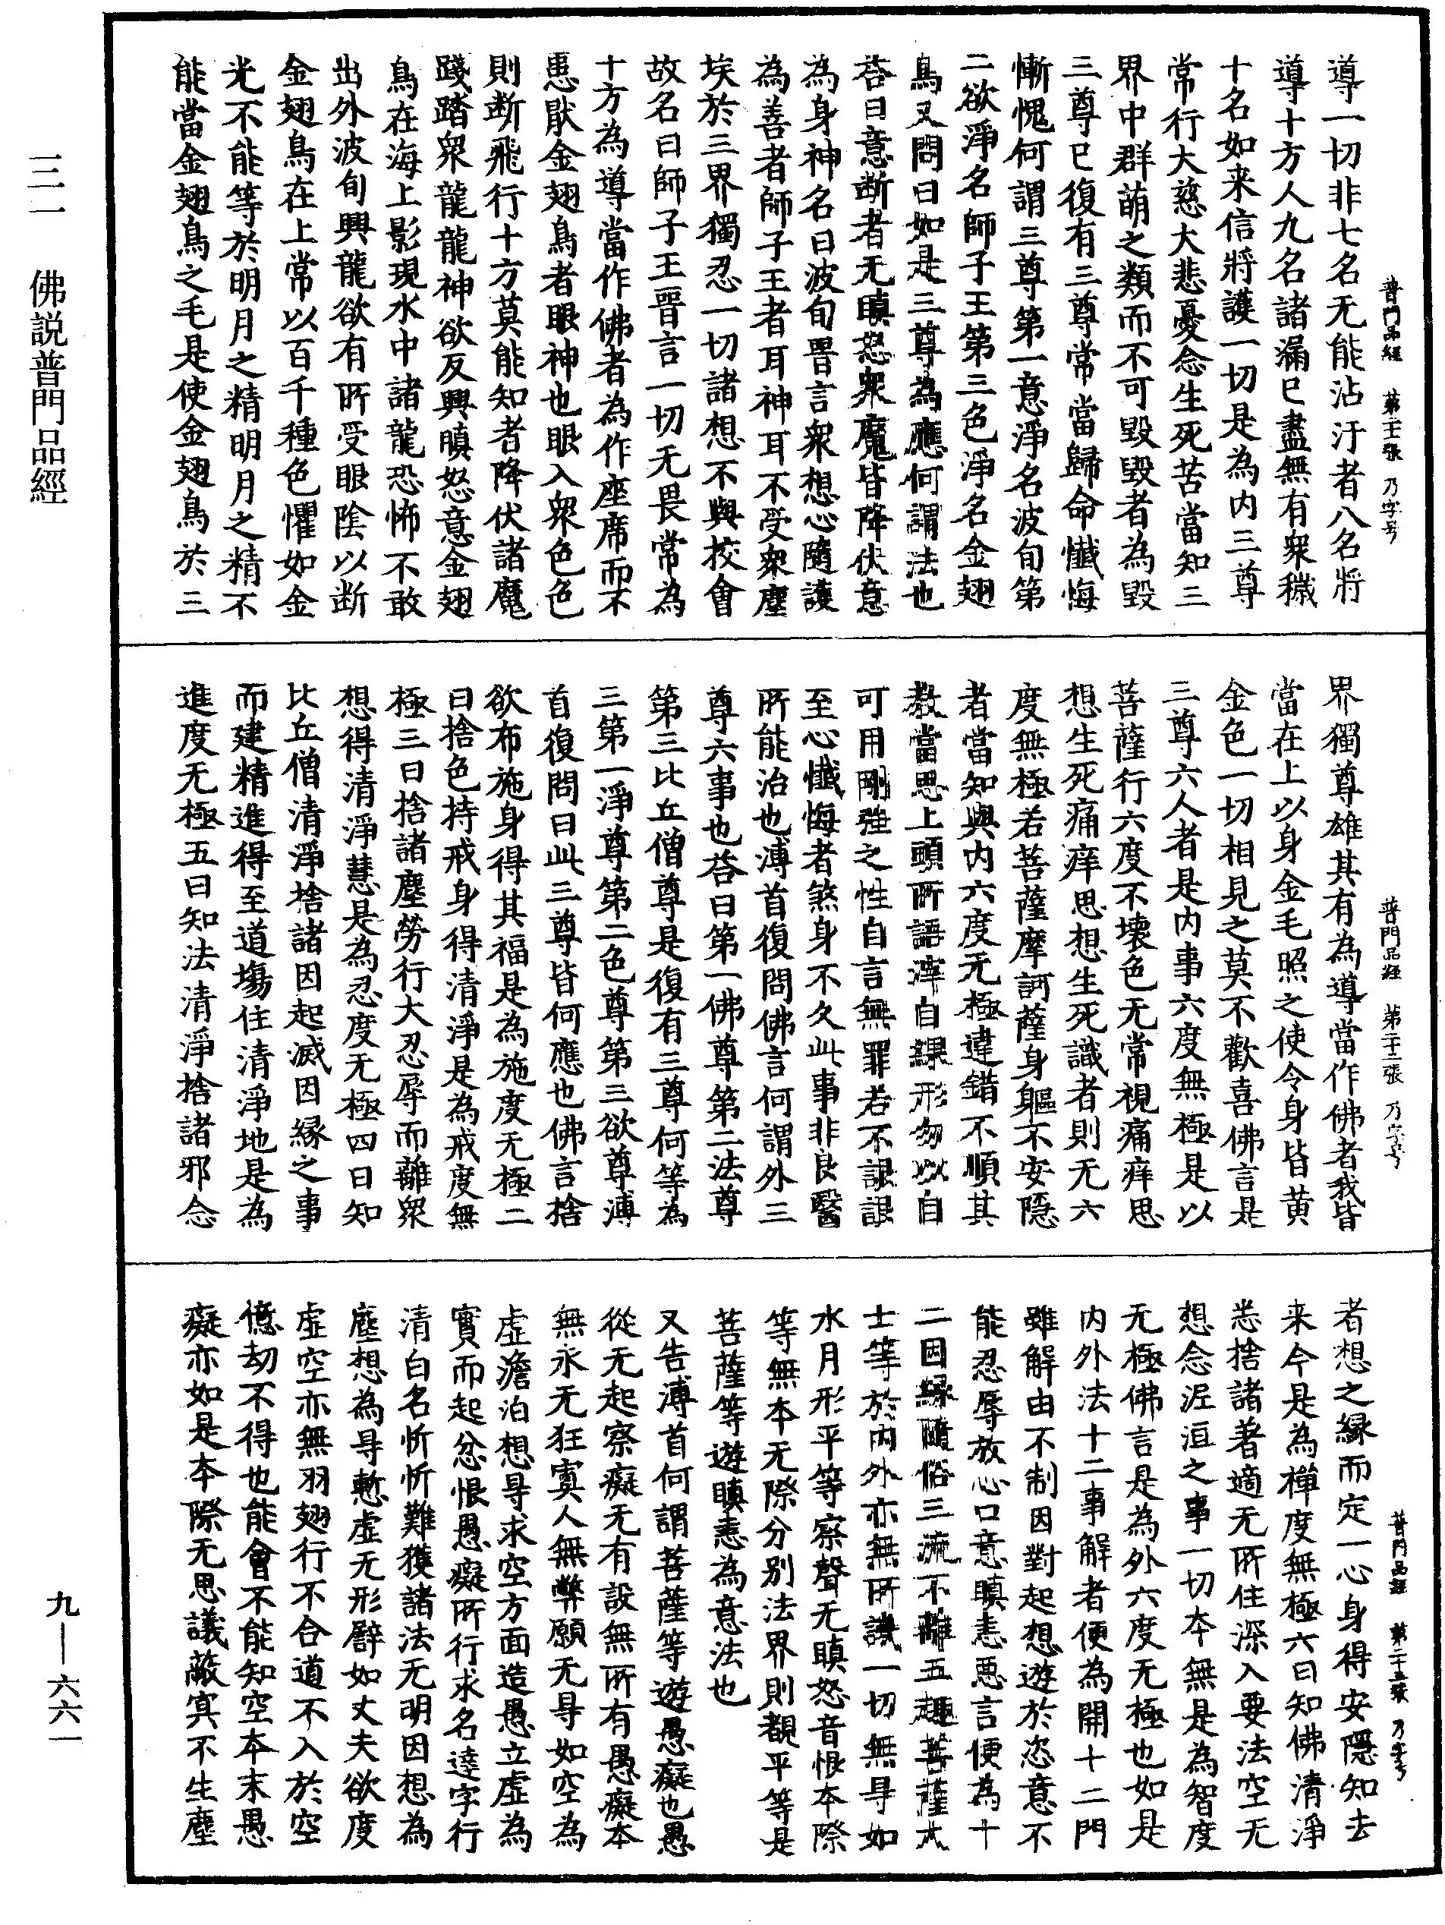 導一切非七名无能沾汙者八名將
導十方人九名諸漏已盡無有衆穢
十名如来信將護一切是為内三尊
常行大慈大悲憂念生死苦當知三
界中群萌之類而不可毀毀者為毀
三尊已復有三尊常當歸命懺悔
慚愧何謂三尊第一意淨名波旬第
二欲淨名師子王第三色淨名金翅
鳥又問曰如是三尊為應何謂法也
荅曰意断者无瞋怒衆魔皆降伏意
為身神名曰波旬畧言衆想心隨護
為善者師子王者耳神耳不受衆塵
埃於三界獨忍一切諸想不與挍會
故名曰師子王畧言一切无畏常為
十方為導當作佛者為作座席而不
患猒金翅鳥者眼神也眼入衆色色
則断飛行十方莫能知者降伏諸魔
踐踏衆龍龍神欲反興瞋怒意金翅
鳥在海上影現水中諸龍恐怖不敢
出外波旬興龍欲有所受眼陰以断
金翅鳥在上常以百千種色懼如金
光不能等於明月之精明月之精不
能當金翅鳥之毛是使金翅鳥於三
普門品經 第二十一張 乃字号
界獨尊雄其有為導當作佛者我皆
當在上以身金毛照之使令身皆黄
金色一切相見之莫不歡喜佛言是
三尊六人者是内事六度無極是以
菩薩行六度不壊色无常視痛痒思
想生死痛痒思想生死識者則无六
度無極若菩薩摩訶薩身軀不安隱
者當知與内六度无極違錯不順其
教當思上頭所語滓自課形匆以自
可用剛強之性自言無罪若不詪詪
至心懺悔者煞身不久此事非良醫
所能治也溥首復問佛言何謂外三
尊六事也荅曰第一佛尊第二法尊
第三比丘僧尊是復有三尊何等為
三第一淨尊第二色尊第三欲尊溥
首復問曰此三尊皆何應也佛言捨
欲布施身得其福是為施度无極二
曰捨色持戒身得清淨是為戒度無
極三曰捨諸塵勞行大忍辱而離衆
想得清淨慧是為忍度无極四曰知
比丘僧清淨捨諸因起滅因縁之事
而建精進得至道塲住清淨地是為
進度无極五曰知法清淨捨諸邪念
普門品經 第二十二張 乃字号
者想之縁而定一心身得安隱知去
来今是為禪度無極六曰知佛清淨
悉捨諸著適无所住深入要法空无
想念泥洹之事一切本無是為智度
无極佛言是為外六度无極也如是
内外法十二事解者便為開十二門
雖解由不制因對起想遊於恣意不
能忍辱放心口意瞋恚惡言便為十
二因縁隨俗三流不離五趣菩薩大
士等於内外亦無所識一切無㝵如
水月形平等察聲无瞋怒音恨本際
等無本无際分别法界則覩平等是
菩薩等遊瞋恚為意法也
又告溥首何謂菩薩等遊愚癡也愚
從无起察癡无有設無所有愚癡本
無永无狂寞人無弊願无㝵如空為
虚澹泊想㝵求空方面造愚立虚為
實而起忿恨愚癡所行求名逹字行
清白名忻忻難獲諸法无明因想為
塵想為㝵慙虚无形辟如丈夫欲度
虚空亦無羽翅行不合道不入於空
億劫不得也能會不能知空本末愚
癡亦如是本際无思議敵㝠不生塵
普門品經 第二十三張 乃字号
三一 佛説普門品經
九—六六一